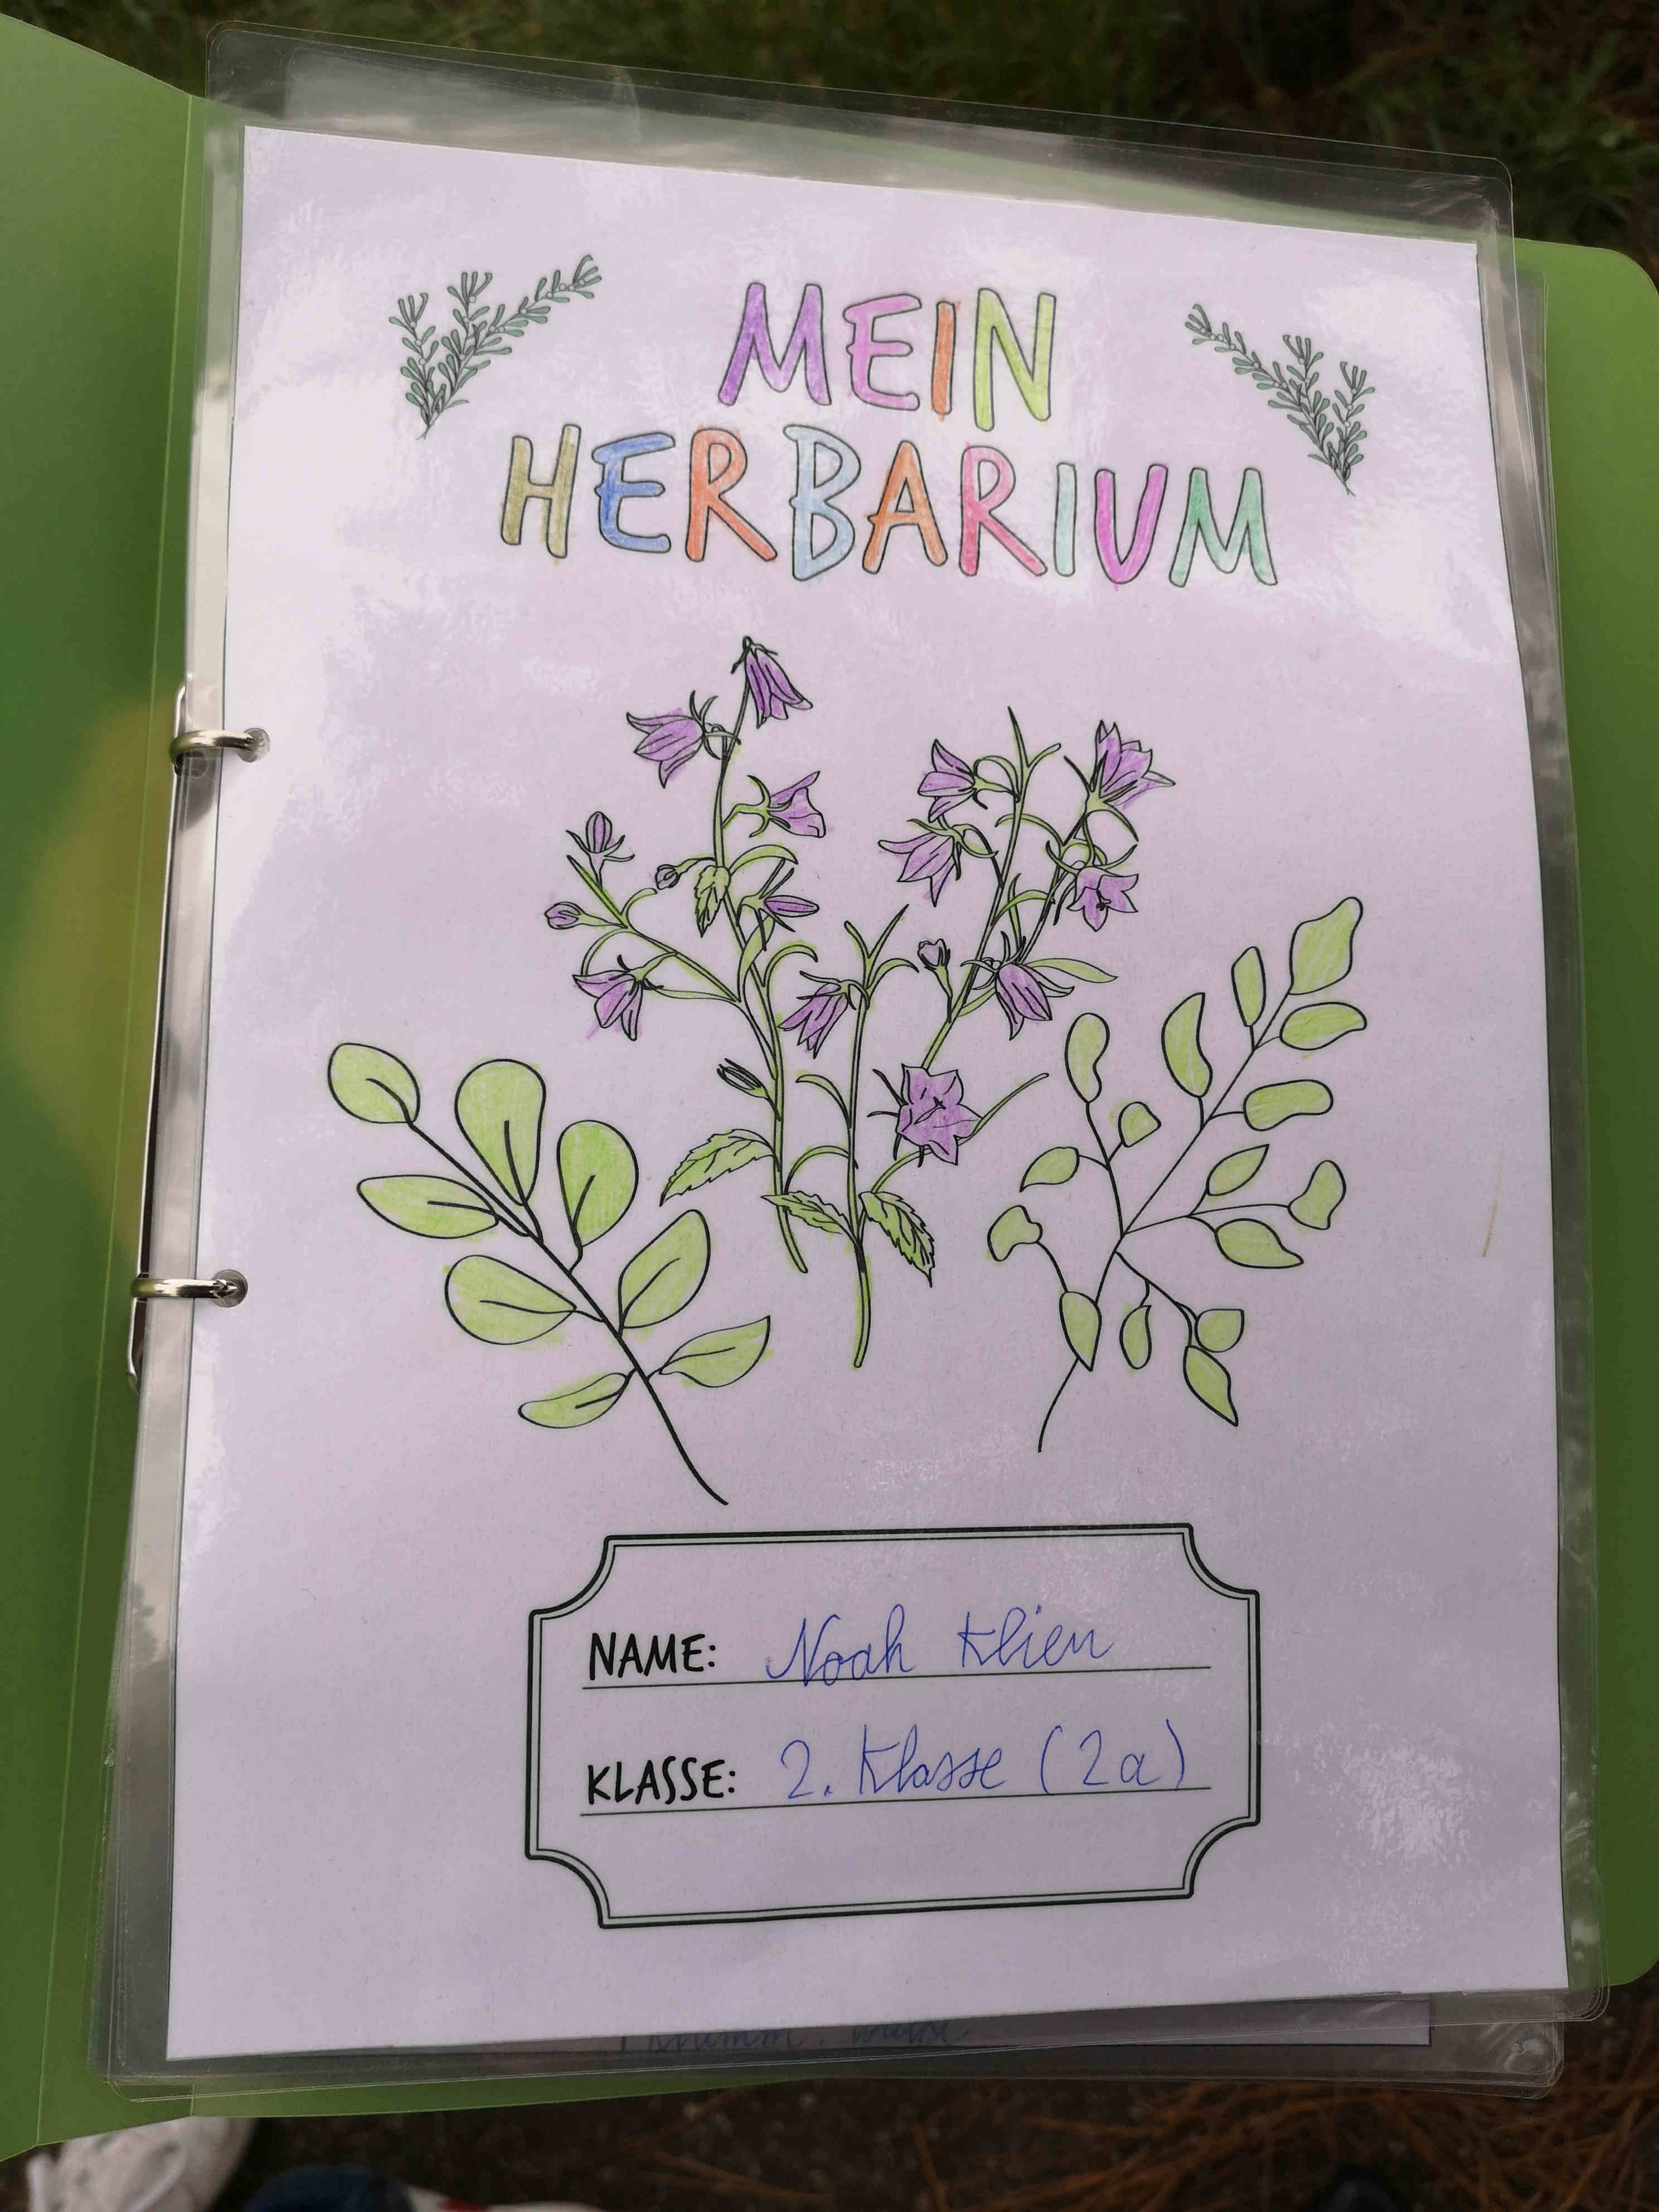 MEIN
HERBARIUM
NAME: Noah Klien
KLASSE: 2. Klasse (2a)